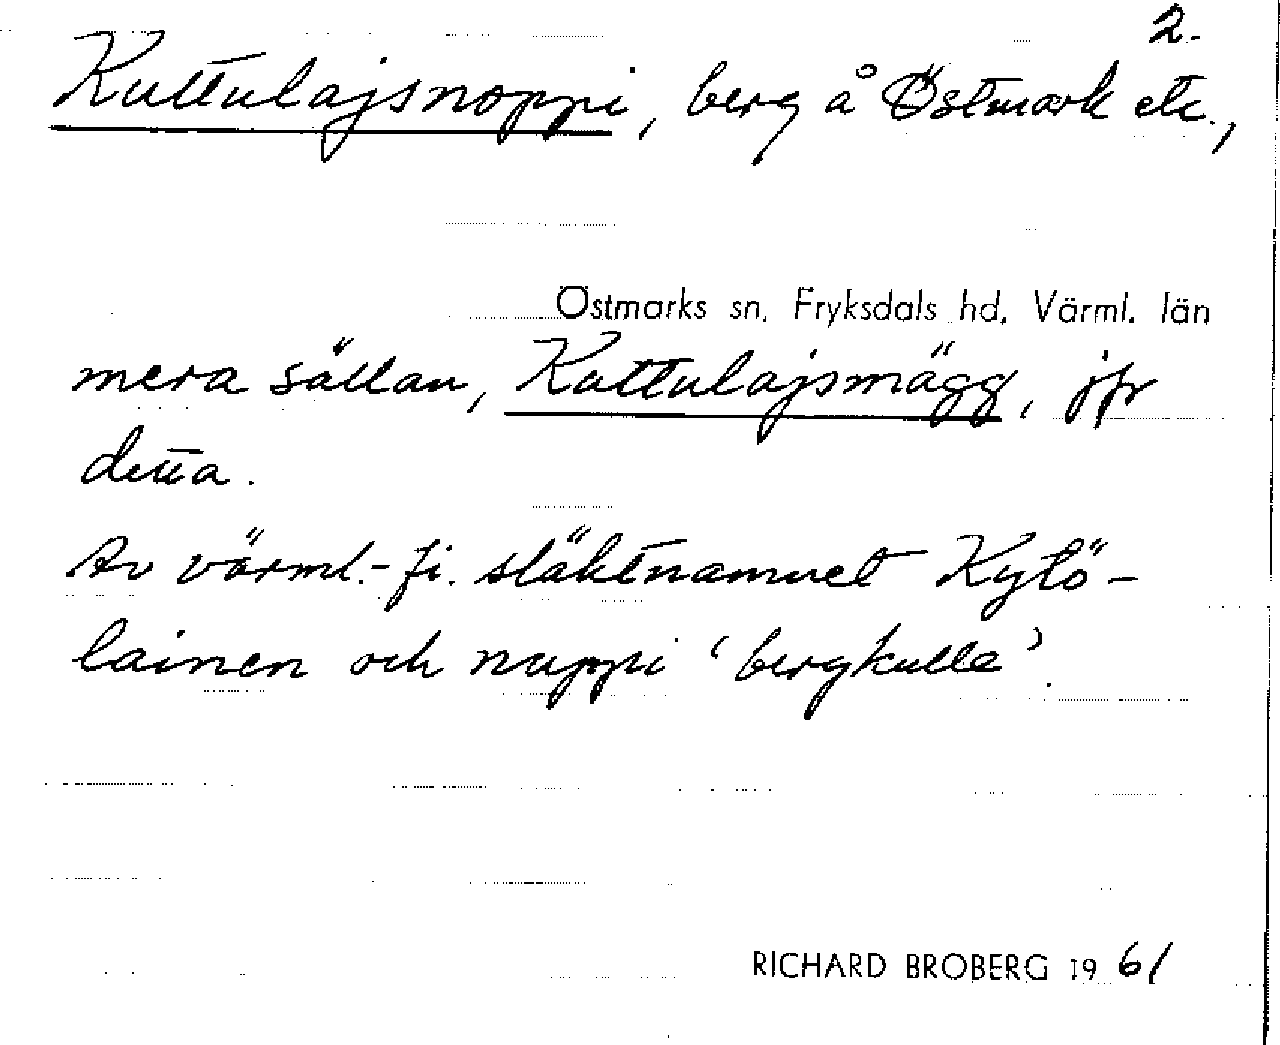 2.
Kuttulajsnoppi, berg å Östmark etc.,
Östmarks sn, Fryksdals hd, Värml. län
mera sällan, Kuttulajsmägg, jfr
detta.
Av värml.-fi. släktnamnet Kytö-
lainen och nuppi 'bergkulle'.
RICHARD BROBERG 1961